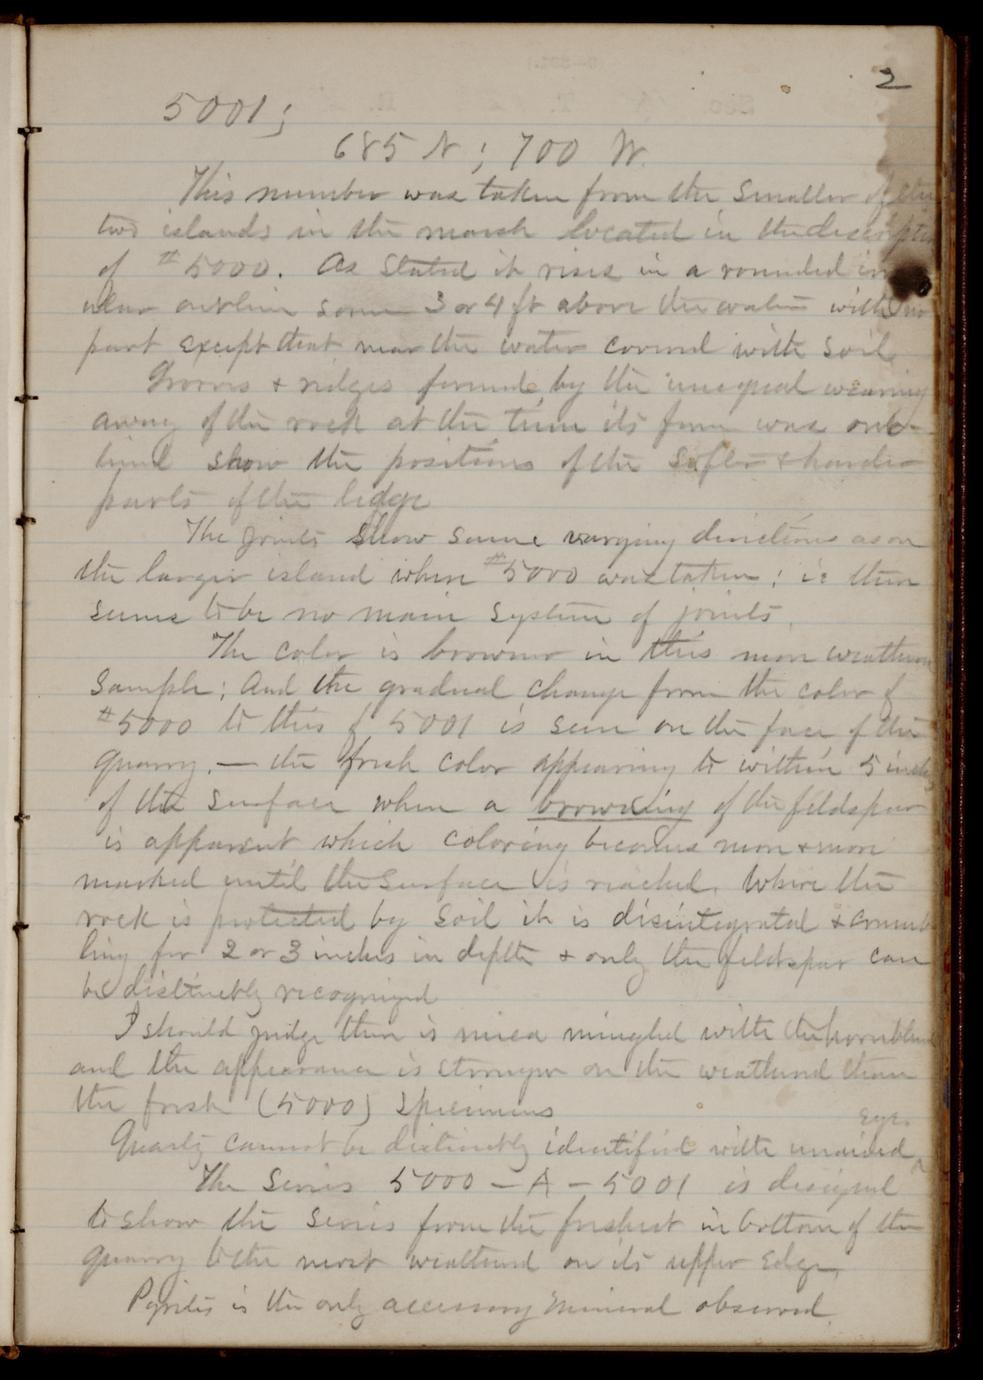 2
5001;
685 N; 700 W.
This number was taken from the smaller of the
two islands in the marsh located in the descriptio
of #5000. As stated it rises in a rounded
outline some 3 or 4 ft above the water with no
part except that near the water covered with soil.
Grooves & ridges formed by the unequal wearing
away of the rock at the time its form was out-
lined show the positions of the softer & harder
parts of the ledge
The joints show same varying directions as on
the larger island where #5000 was taken; ie there
seems to be no main system of joints.
The color is browner in this more weathered
sample; And the gradual change from the color of
#5000 to this of 5001 is seen on the face of the
quarry. — the fresh color appearing to within 5 inches
of the surface when a browning of the feldspar
is apparent which coloring becomes more & more
marked until the surface is reached. Where the
rock is protected by soil it is disintegrated & crumb
ling for 2 or 3 inches in depth & only the feldspar can
be distinctly recognized
I should judge there is mica mingled with the hornblende
and the appearance is stronger on the weathered than
the fresh (5000) specimens
Quartz cannot be distinctly identified with unaided eye.
The Series 5000 – A – 5001 is designed
to show the series from the freshest in bottom of the
quarry to the most weathered on its upper edge.
Pyrites is the only accessory mineral observed.